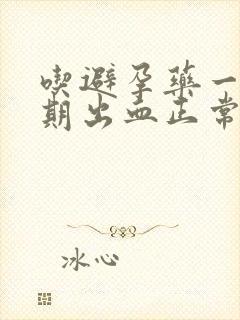 喫避孕藥一
期出血正常
冰心